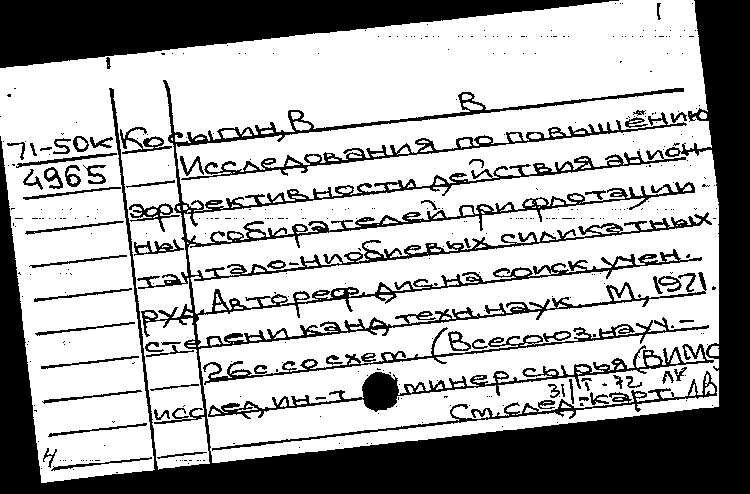 1
71-50к Косыгин, В В
4965 Исследования по повышению
эффективности действия анион-
ных собирателей при флотации
тантало-ниобиевых силикатных
руд. Автореф. дис. на соиск. учен.
степени канд. техн. наук. М., 1971.
26с. со схем. (Всесоюз. науч.-
исслед. ин-т минер. сырья (ВИМС
31/I-72
См. след. карт. ЛВ
4